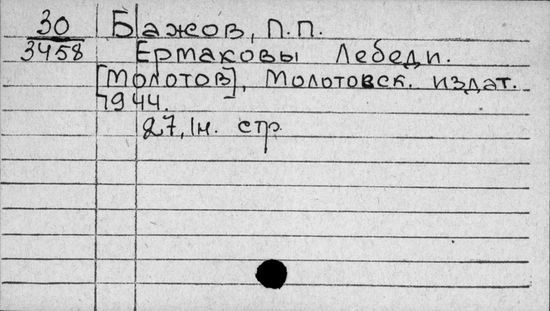 30 Бажов, П.П.
3458 Ермаковы Лебеди.
[Молотов], Молотовск. издат.
1944.
27, 1н. стр.